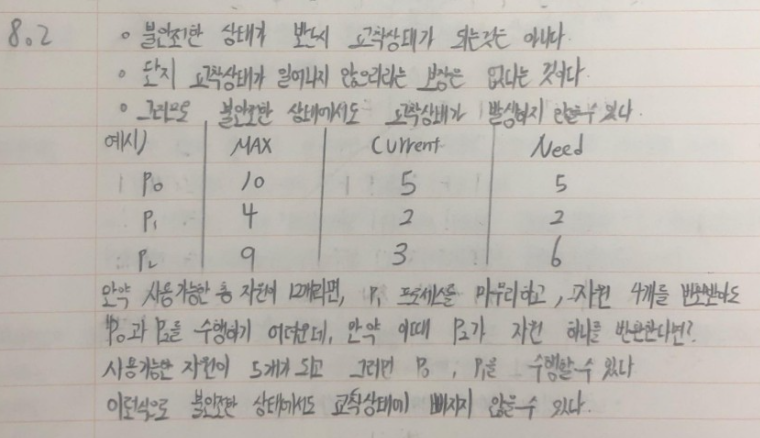 8.2 ◦ 불안전한 상태가 반드시 교착상태가 되는것은 아니다.
◦ 단지 교착상태가 일어나지 않으리라는 보장은 없다는 것이다.
◦ 그러므로 불안전한 상태에서도 교착상태가 발생하지 않을 수 있다.
예시) MAX Current Need
P0 10 5 5
P1 4 2 2
P2 9 3 6
만약 사용가능한 총 자원이 12개라면, P1 프로세스를 마무리하고, 자원 4개를 반환받아도
P0과 P2를 수행하기 어려운데, 만약 이때 P2가 자원 하나를 반환한다면?
사용가능한 자원이 5개가 되고 그러면 P0, P1을 수행할 수 있다
이런식으로 불안전한 상태에서도 교착상태에 빠지지 않을 수 있다.